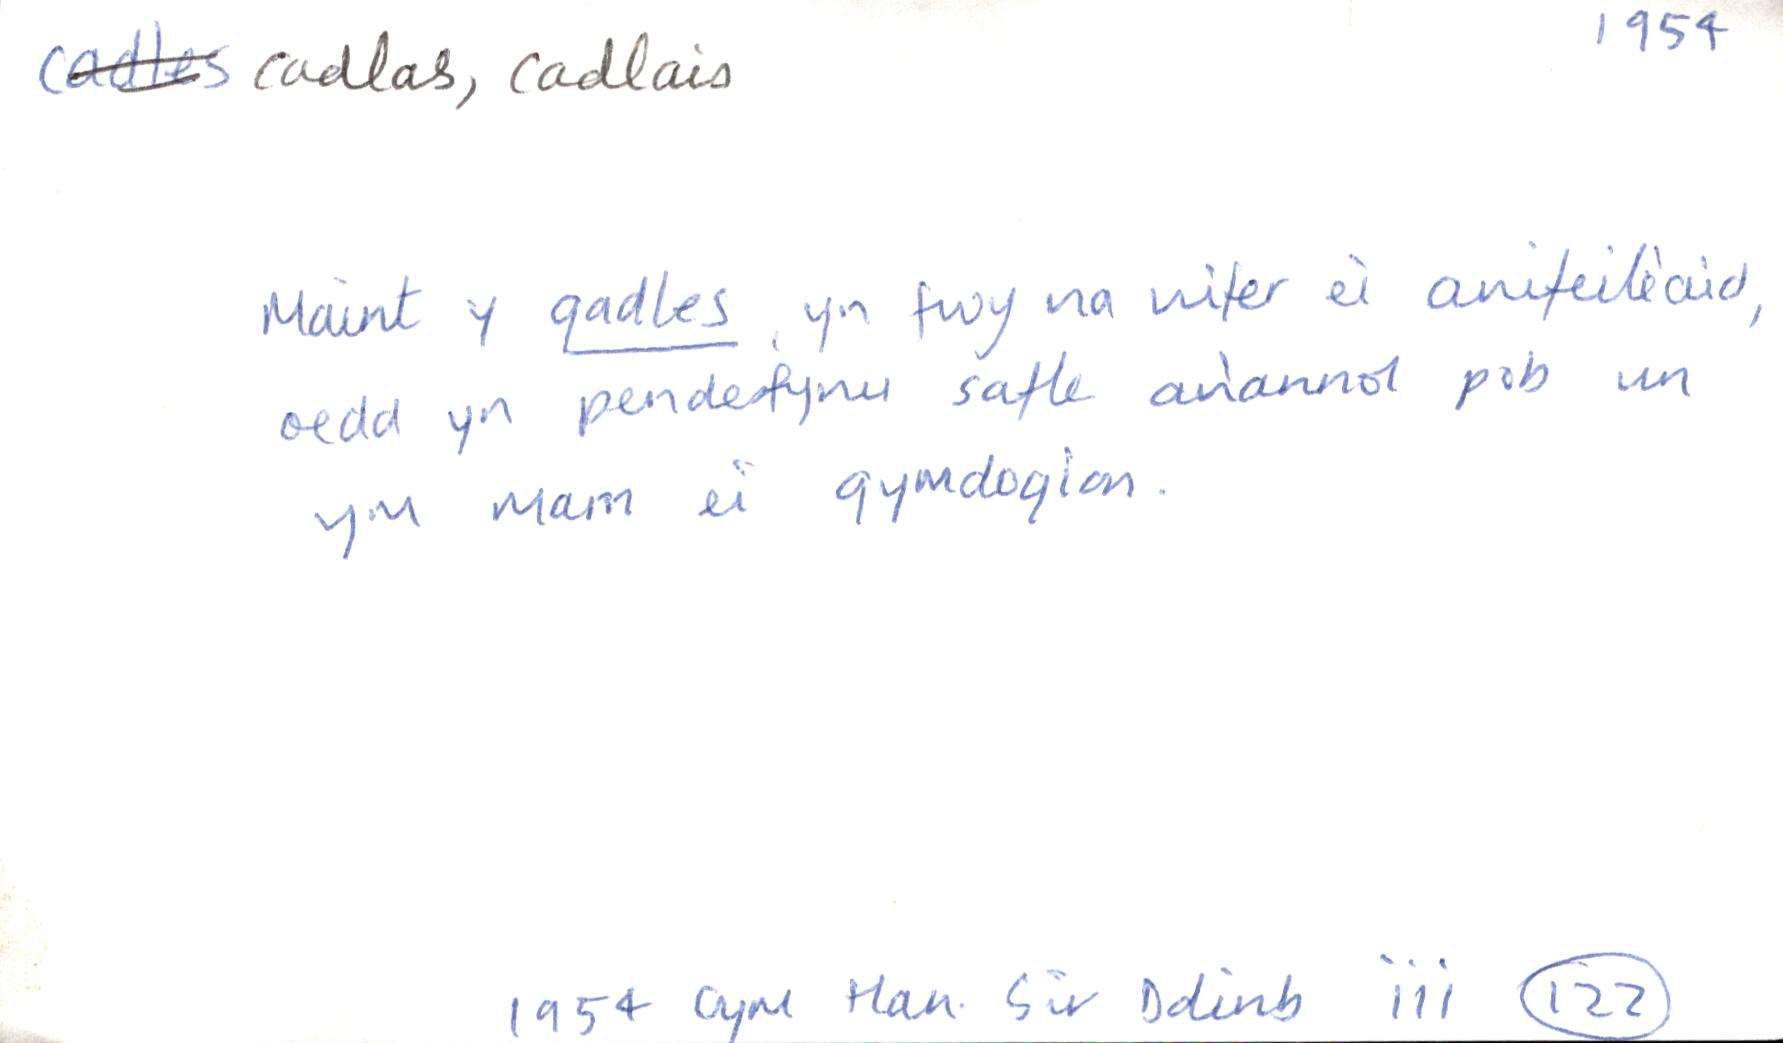 1954
cadles cadlas, cadlais
Maint y gadles, yn fwy na nifer ei anifeiliaid,
oedd yn penderfynu safle ariannol pob un
ym marn ei gymdogion.
1954 Cym Han. Sir Ddinb iii 122